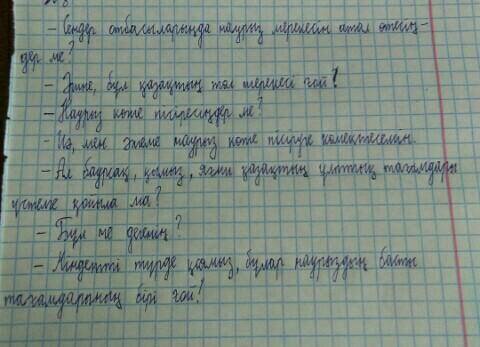 - Сендер отбасыларыңда наурыз мерекесін атап өтесің-
дер ме?
- Әрине, бұл қазақтың төл мерекесі ғой!
- Наурыз көже пісіресіңдер ме?
- Иә, мен әжеме наурыз көже пісіруге көмектесемін.
- Ал бауырсақ, қымыз, яғни қазақтың ұлттық тағамдары
үстелге қойыла ма?
- Бұл не дегенің?
- Міндетті түрде қоямыз, бұлар наурыздың басты
тағамдарының бірі ғой!